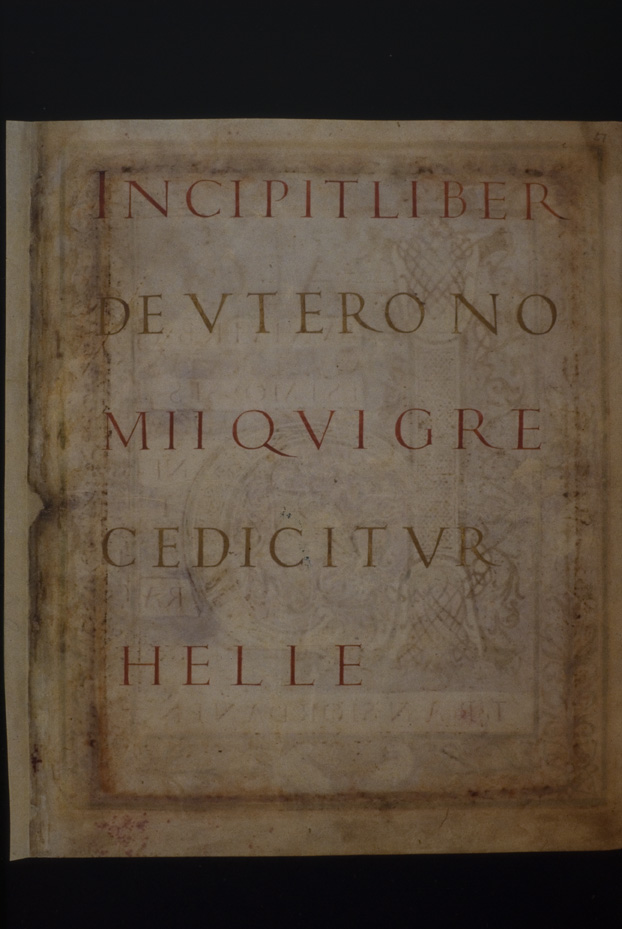 INCIPITLIBER
DEVTERONO
MIIQVIGRE
CEDICITVR
HELLE